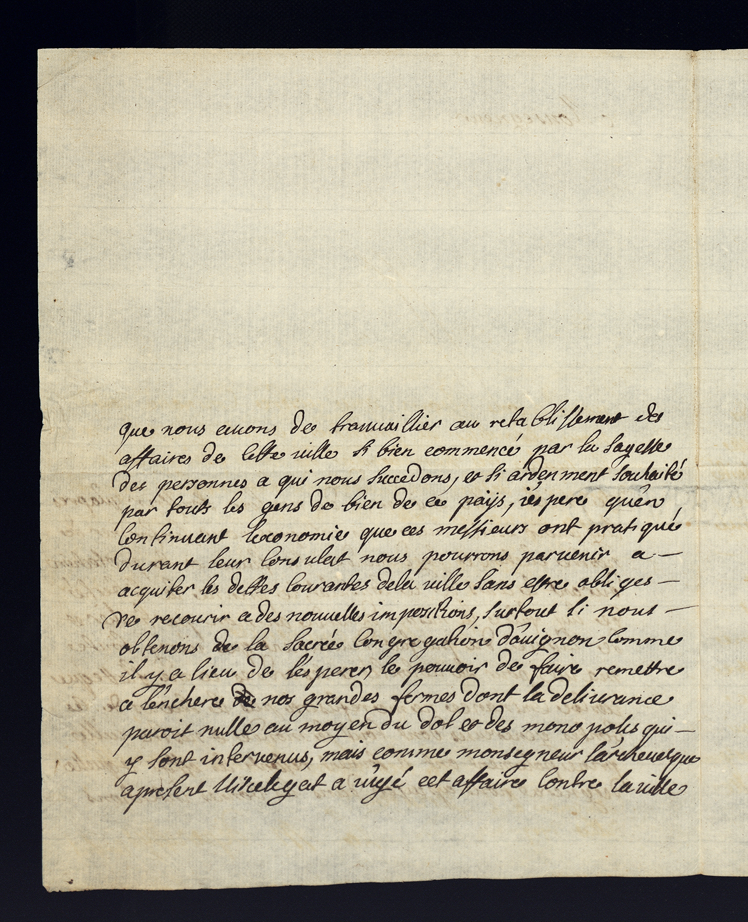 que nous auons de trauaillier au retablissement des
affaires de cette ville si bien commencé par la sagesse
des personnes a qui nous succedons, et si ardenment souhaité
par touts les gens de bien de ce païs, i'espere qu'en
continuant l'economie que ces messieurs ont pratiqué
durant leur consulat nous pourrons paruenir a —
acquiter les dettes courantes dela ville sans estre obliges —
de recourir a des nouvelles impositions, surtout si nous —
obtenons de la sacrée congregation d'auignon comme
il y a lieu de l'esperer, le pouuoir de faire remettre
a l'enchere de nos grandes fermes dont la deliurance
paroit nulle au moyen du dol et des monopoles qui —
y sont interuenus, mais comme monsegneur l'archeuesque
apresent Vicelegat a iugé cet affaire contre la ville